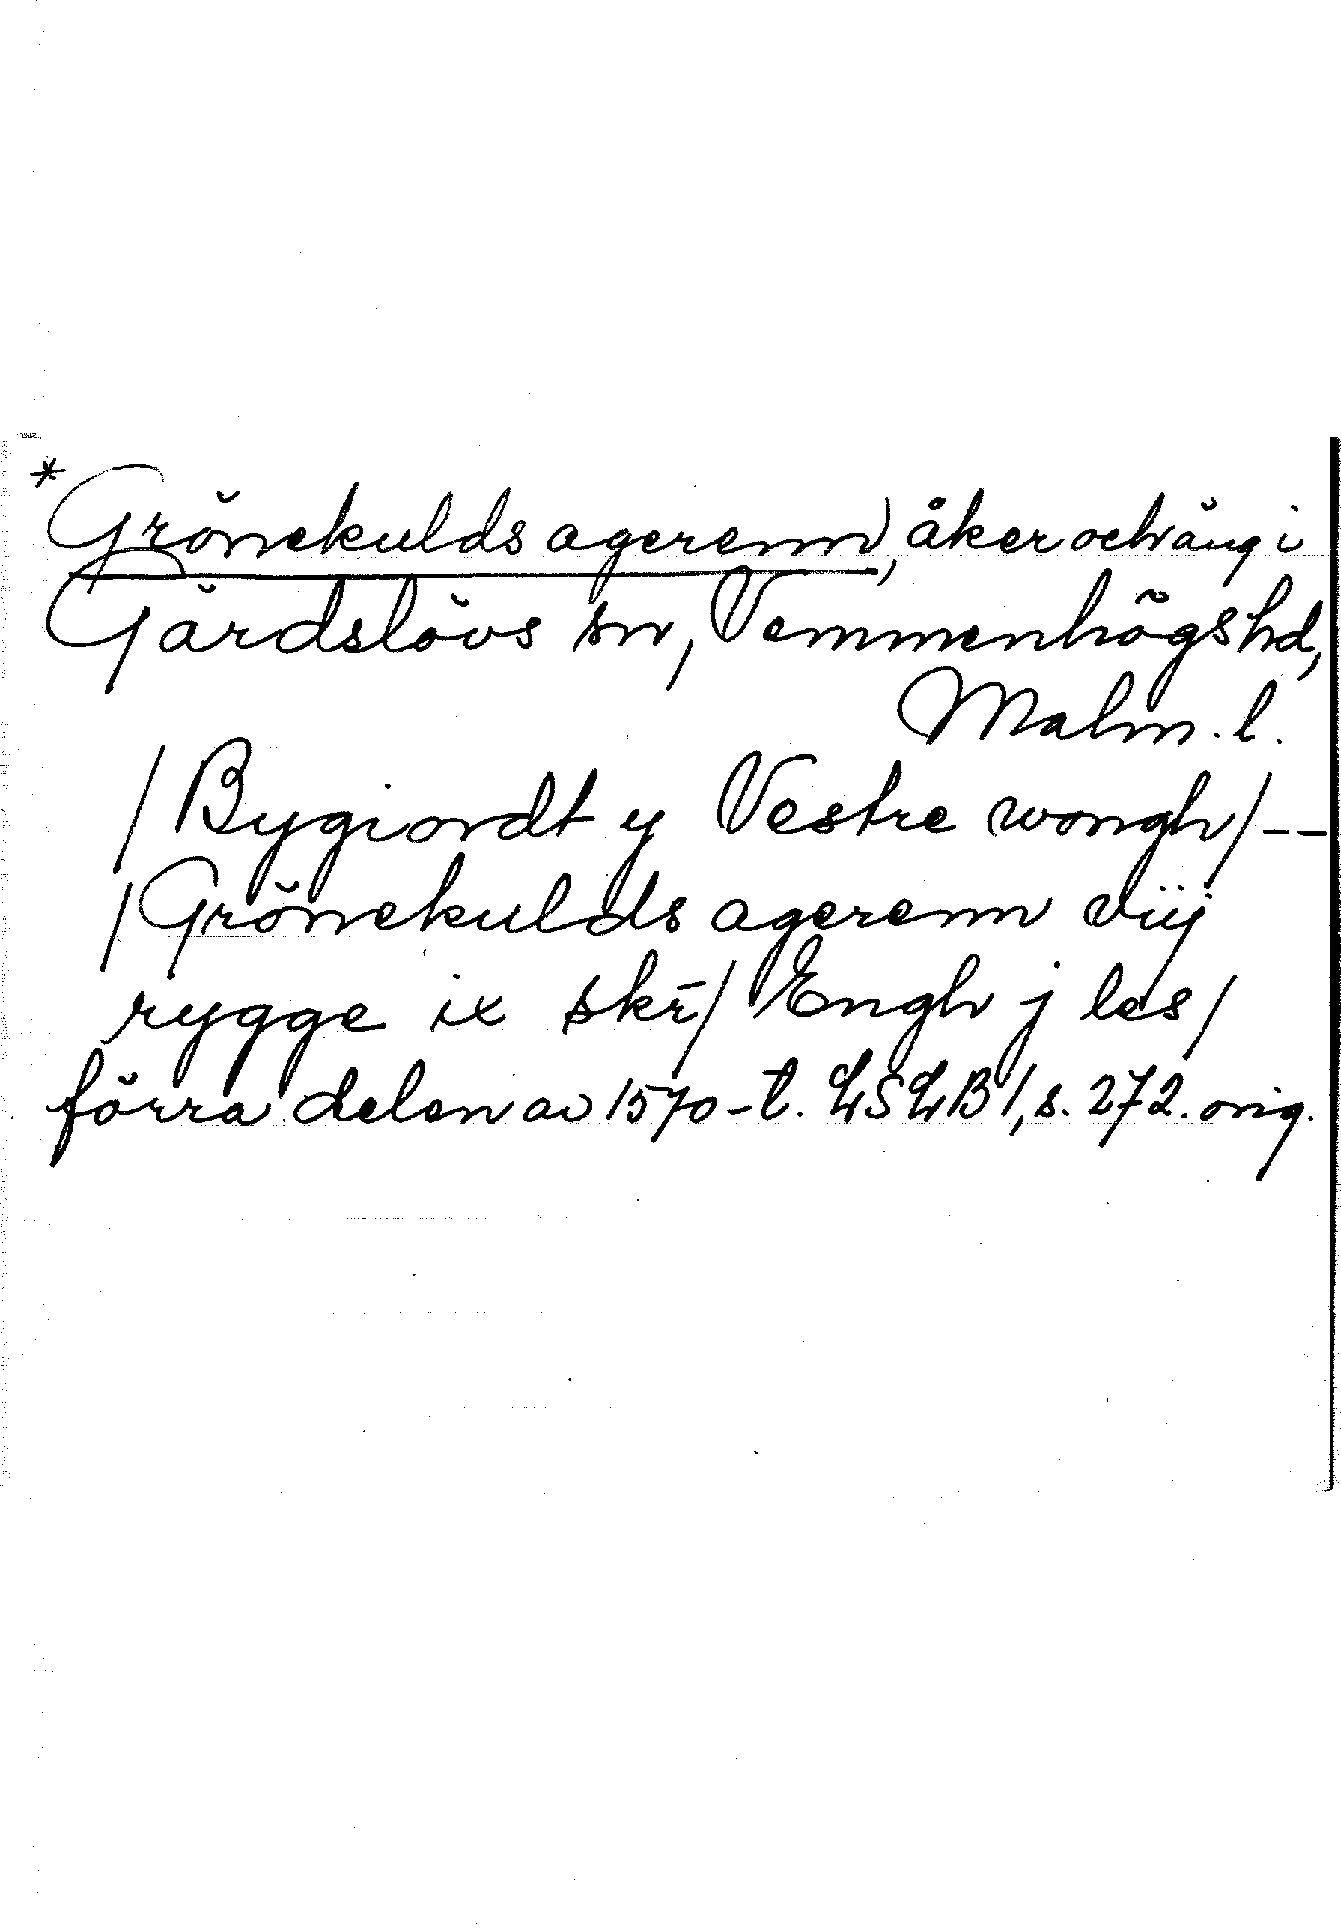 *Grönekulds agerenn, åker och äng i
Gärdslövs sn, Vemmenhögs hd,
Malm. l.
/Bygiordt y Vestre wongh/--
/Grönekulds agerenn viij
rygge ix skr̄/ Engh j les/
förra delen av 1570-t. LSLB 1, s. 272. orig.